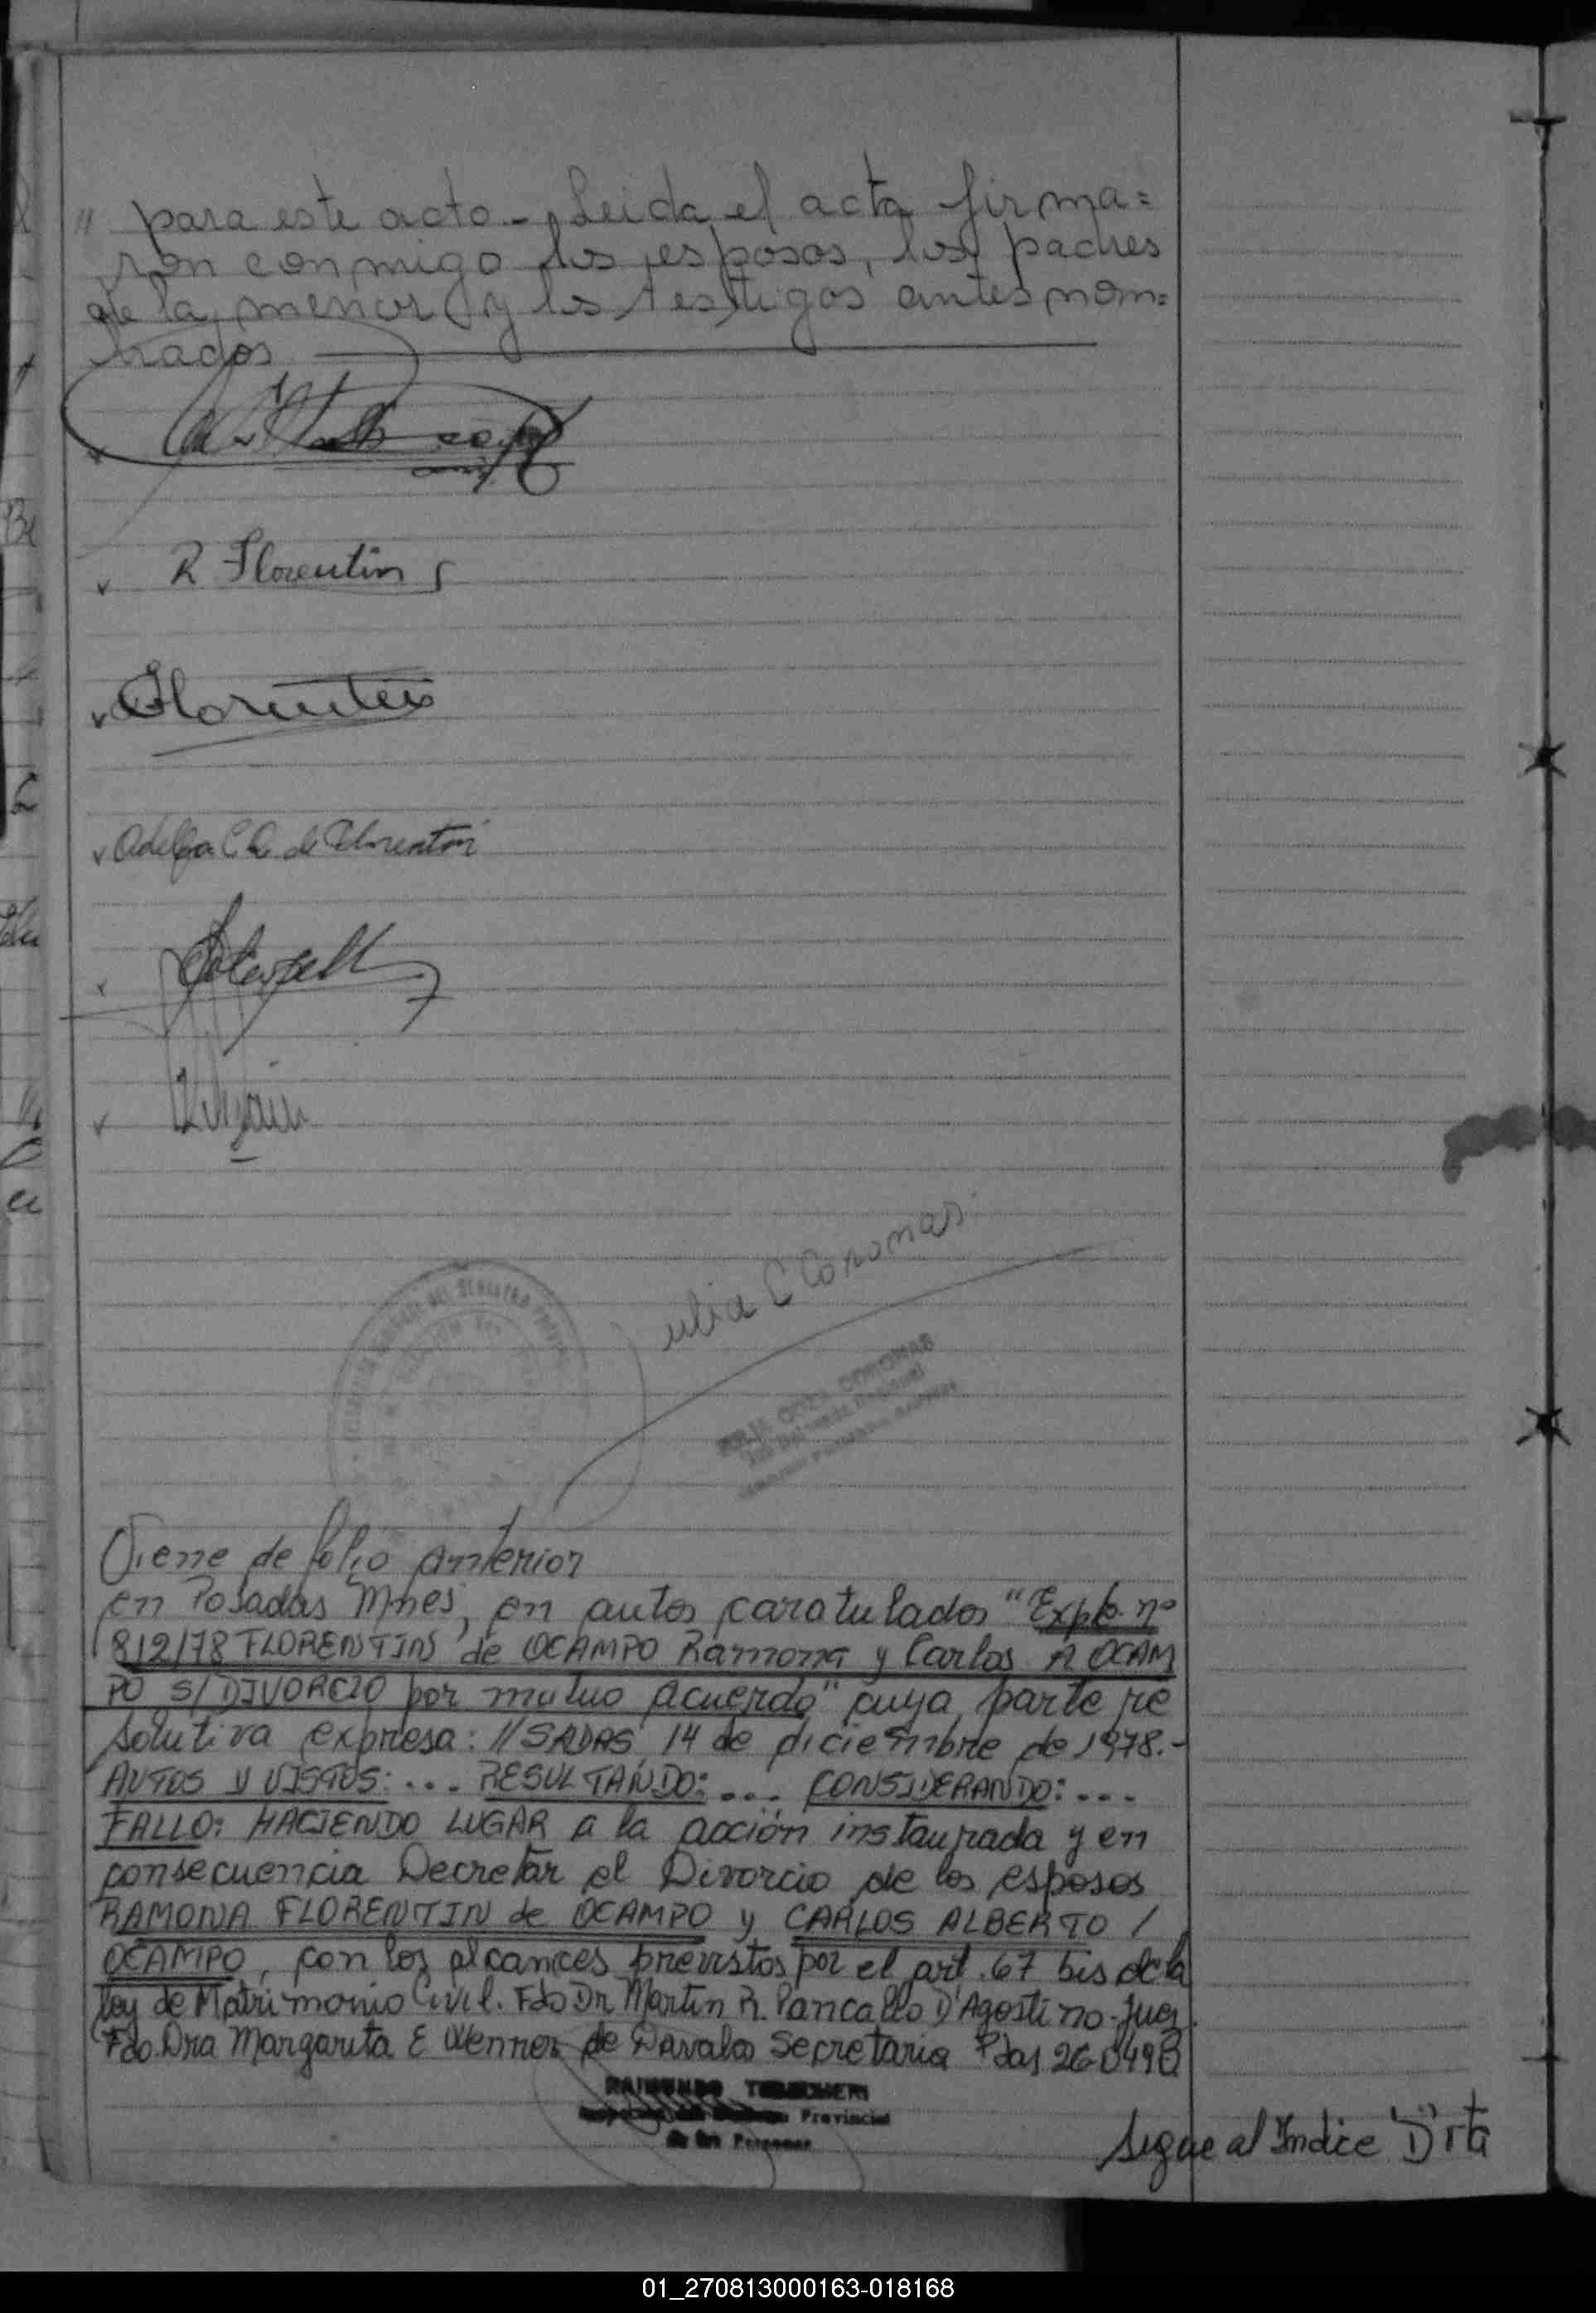 " para este acto - Leida el acta firma=
ron conmigo los esposos, los padres
de la menor y los testigos antes nom=
brados
R Florentin
Florentin
Adelfa C de Florentin
Julia C Coromas
COROMAS
Viene de folio anterior
en Posadas Mnes, en autos caratulados "Expte. nº
812/78 FLORENTIN de OCAMPO Ramona y Carlos A OCAM
PO S/DIVORCIO por mutuo acuerdo" cuya parte re
solutiva expresa: //SADAS 14 de diciembre de 1978.-
AUTOS Y VISTOS: ... RESULTANDO: ... CONSIDERANDO: ...
FALLO: HACIENDO LUGAR a la acción instaurada y en
consecuencia Decretar el Divorcio de los esposos
RAMONA FLORENTIN de OCAMPO y CARLOS ALBERTO /
OCAMPO, con los alcances previstos por el art. 67 bis de la
ley de Matrimonio Civil. Fdo Dr Martin R. Pancallo D'Agostino - Juez.
Fdo. Dra Margarita E Wenner de Davalos Secretaria Pdas
RAIMUNDO
Provincial
de las Personas
Sigue al Indice
01_270813000163-018168